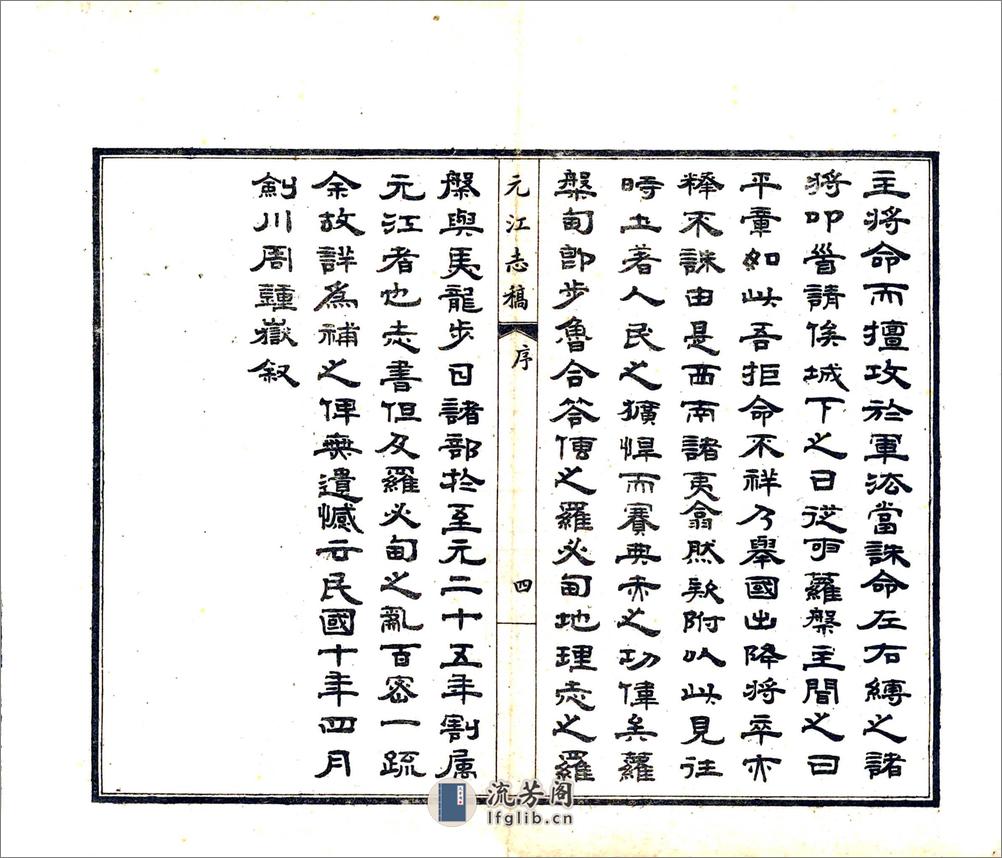 主將命而擅攻於軍法當誅命左右縛之諸
將叩首請俟城下之日從事羅槃主聞之曰
平章如此吾拒命不祥乃舉國出降將卒亦
釋不誅由是西南諸夷翕然款附以此見往
時土著人民之獷悍而賽典赤之功偉矣羅
槃甸卽步魯合答傳之羅必甸地理志之羅
元江志稿
序
四
槃與馬龍步日諸部於至元二十五年割屬
元江者也志書但及羅必甸之亂百密一疏
余故詳爲補之俾無遺憾云民國十年四月
劍川周鍾嶽叙
流芳阁
lfglib.cn